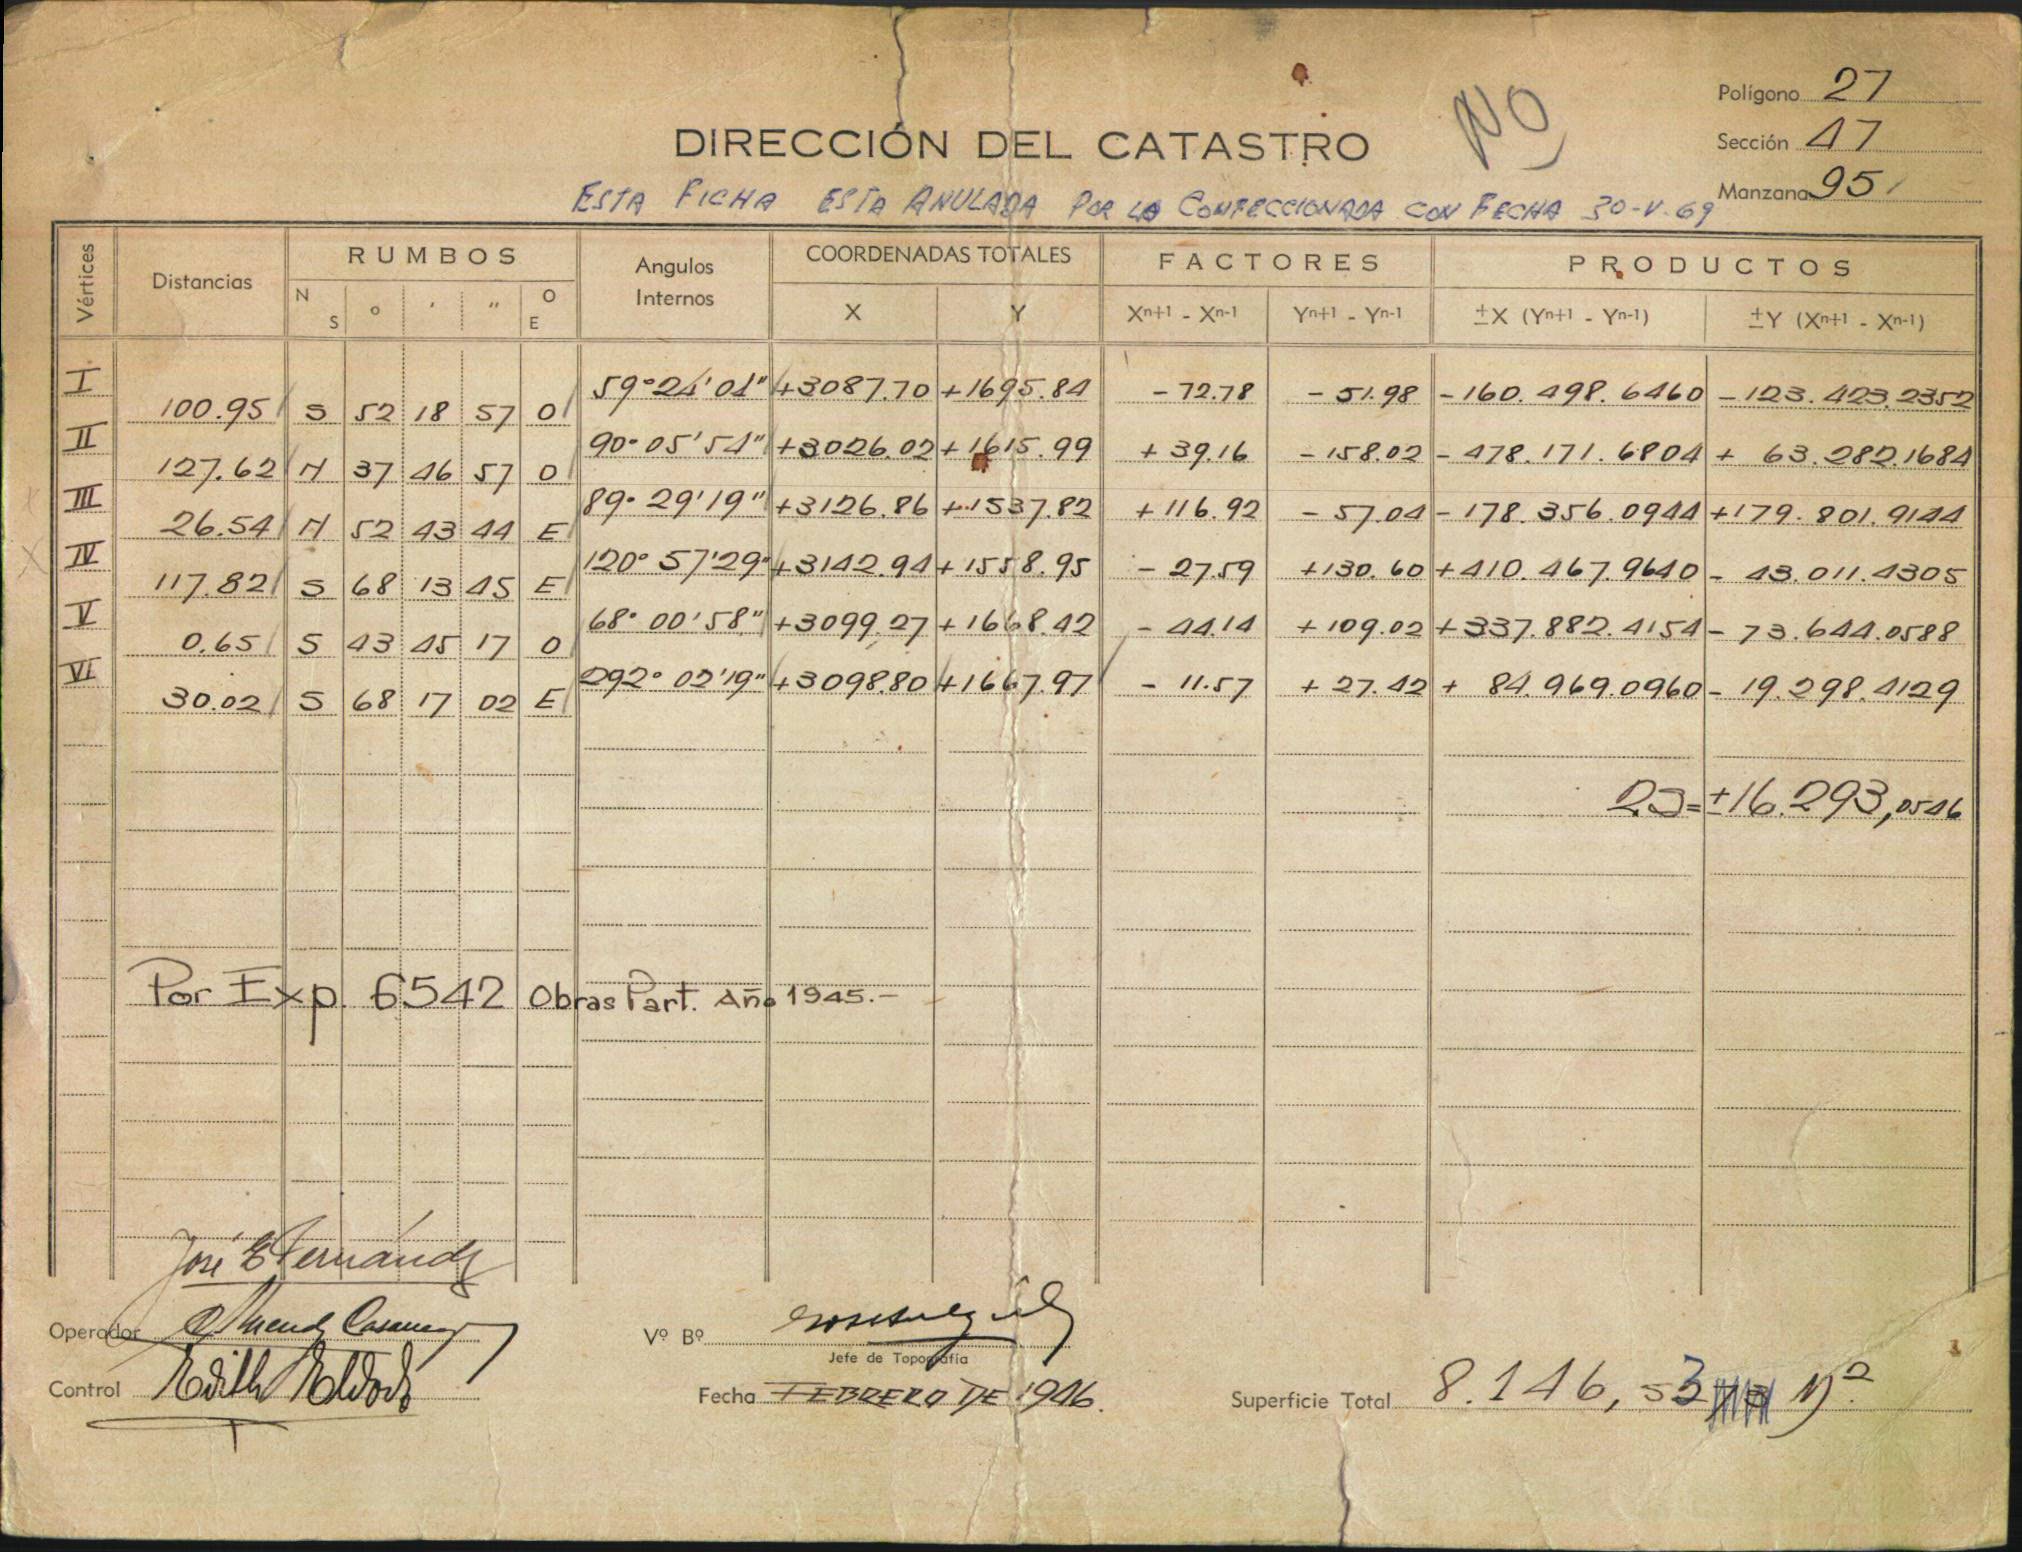 NO
Polígono 27
DIRECCIÓN DEL CATASTRO
Sección 47
Manzana 95
ESTA FICHA ESTA ANULADA POR LA CONFECCIONADA CON FECHA 30-V-69
Vértices Distancias RUMBOS Angulos Internos COORDENADAS TOTALES FACTORES PRODUCTOS
N S o ' " O E X Y Xn+1 - Xn-1 Yn+1 - Yn-1 ±X (Yn+1 - Yn-1) ±Y (Xn+1 - Xn-1)
I 59°24'01" +3087.70 +1695.84 - 72.78 - 51.98 - 160.498.6460 - 123.423.2352
100.95 S 52 18 57 O
II 90°05'54" +3026.02 +1615.99 + 39.16 - 158.02 - 478.171.6804 + 63.282.1684
127.62 N 37 46 57 O
III 89°29'19" +3126.86 +1537.82 + 116.92 - 57.04 - 178.356.0944 +179.801.9144
26.54 N 52 43 44 E
IV 120°57'29" +3142.94 +1558.95 - 27.59 +130.60 +410.467.9640 - 43.011.4305
117.82 S 68 13 45 E
V 68°00'58" +3099.27 +1668.42 - 44.14 +109.02 +337.882.4154 - 73.644.0588
0.65 S 43 45 17 O
VI 292°02'19" +3098.80 +1667.97 - 11.57 + 27.42 + 84.969.0960 - 19.298.4129
30.02 S 68 17 02 E
2S=±16.293,0546
Por Exp. 6542 Obras Part. Año 1945.-
José E Fernández
Operador
Vº Bº
Jefe de Topografía
Control Edith
Fecha FEBRERO DE 1946.
Superficie Total 8.146,53 M2.